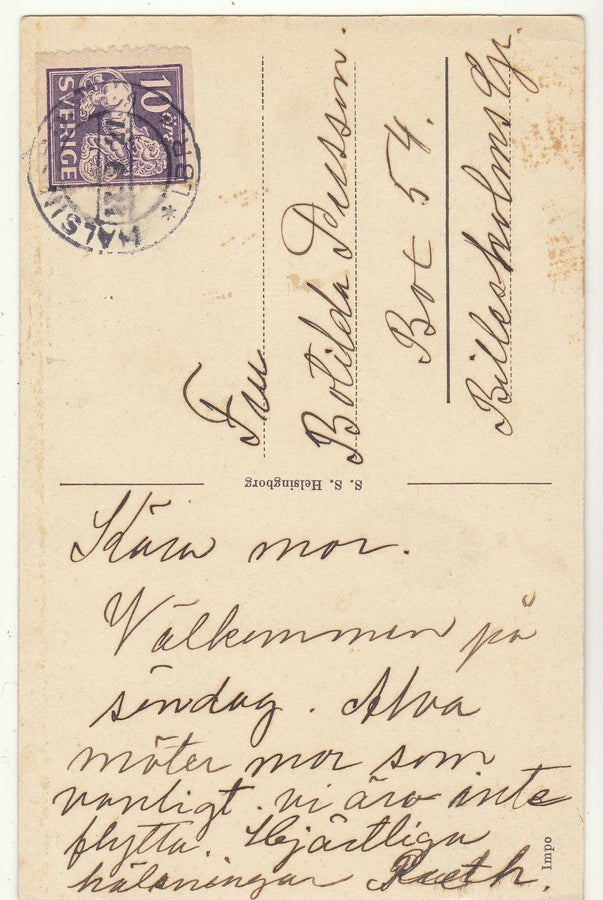 10 ÖRE
SVERIGE
HÄLSING
LBR
Fru
Botilda Persson.
Box 54.
Billesholms Gr.
S. S. Helsingborg
Kära mor.
Välkommen på
söndag. Alva
möter mor som
vanligt. vi äro inte
flytta. Hjärtliga
hälsningar Ruth.
Impo